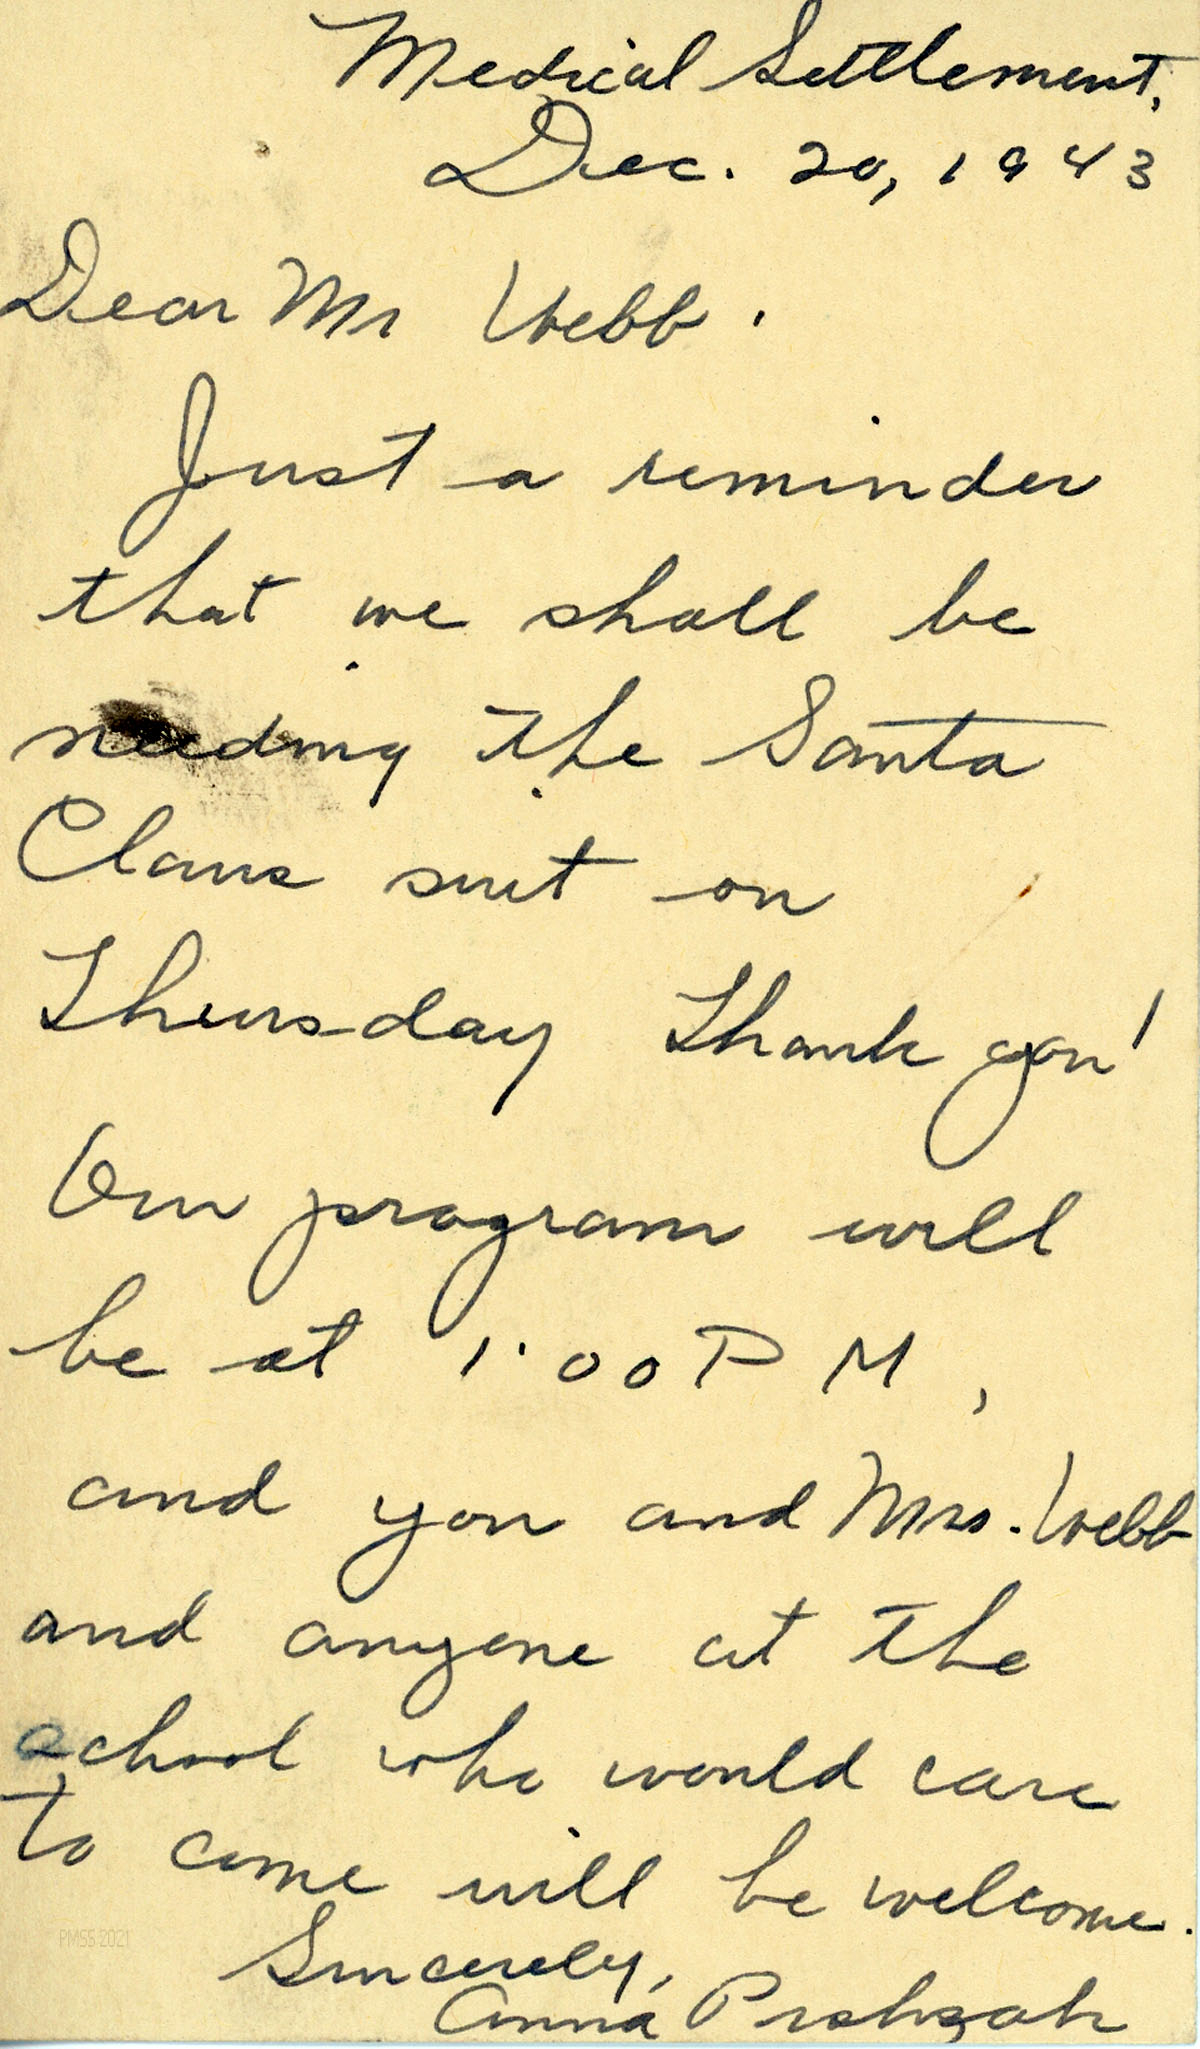 Medical Settlement,
Dec. 20, 1943
Dear Mr Webb.
Just a reminder
that we shall be
needing the Santa
Claus suit on
Thursday Thank you!
Our program will
be at 1:00 P M,
and you and Mrs. Webb
and anyone at the
school who would care
to come will be welcome.
PMSS 2021
Sincerely,
Anna